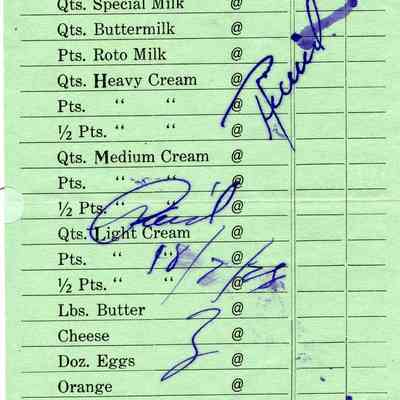 Qts. Special Milk @
Qts. Buttermilk @
Pts. Roto Milk @
Qts. Heavy Cream @
Pts. “ “ @
½ Pts. “ “ @
Qts. Medium Cream @
Pts. “ “ @
½ Pts. “ “ @
Paid
Qts. Light Cream @
Pts. “ “ @
½ Pts. “ “ @
Lbs. Butter @
Cheese @
Doz. Eggs @
Orange @